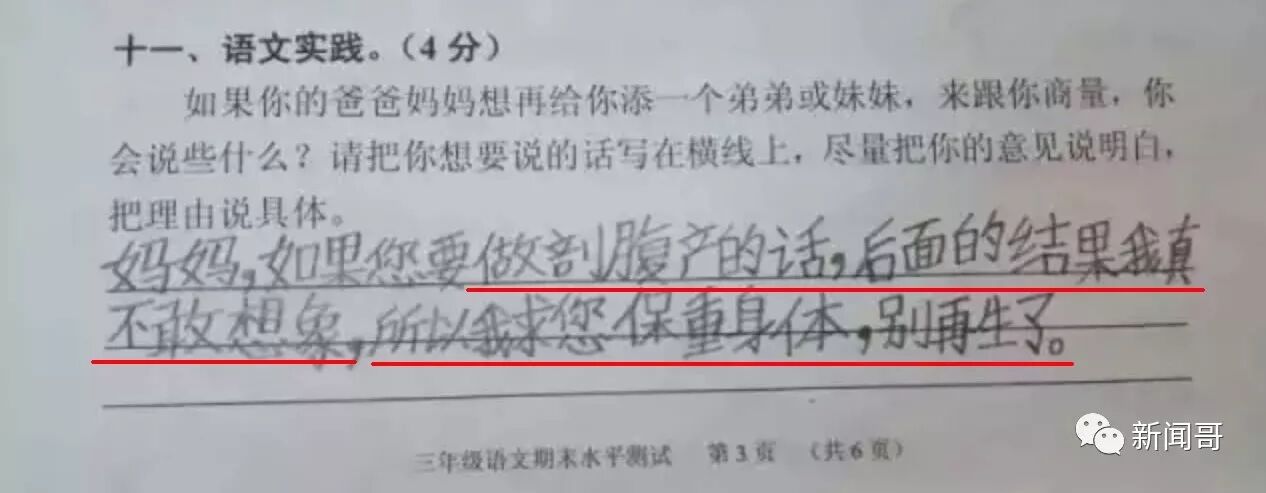 十一、语文实践。（4分）
如果你的爸爸妈妈想再给你添一个弟弟或妹妹，来跟你商量，你
会说些什么？请把你想要说的话写在横线上，尽量把你的意见说明白，
把理由说具体。
妈妈，如果您要做剖腹产的话，后面的结果我真
不敢想象，所以我求您保重身体，别再生了。
三年级语文期末水平测试 第3页 （共6页）
新闻哥